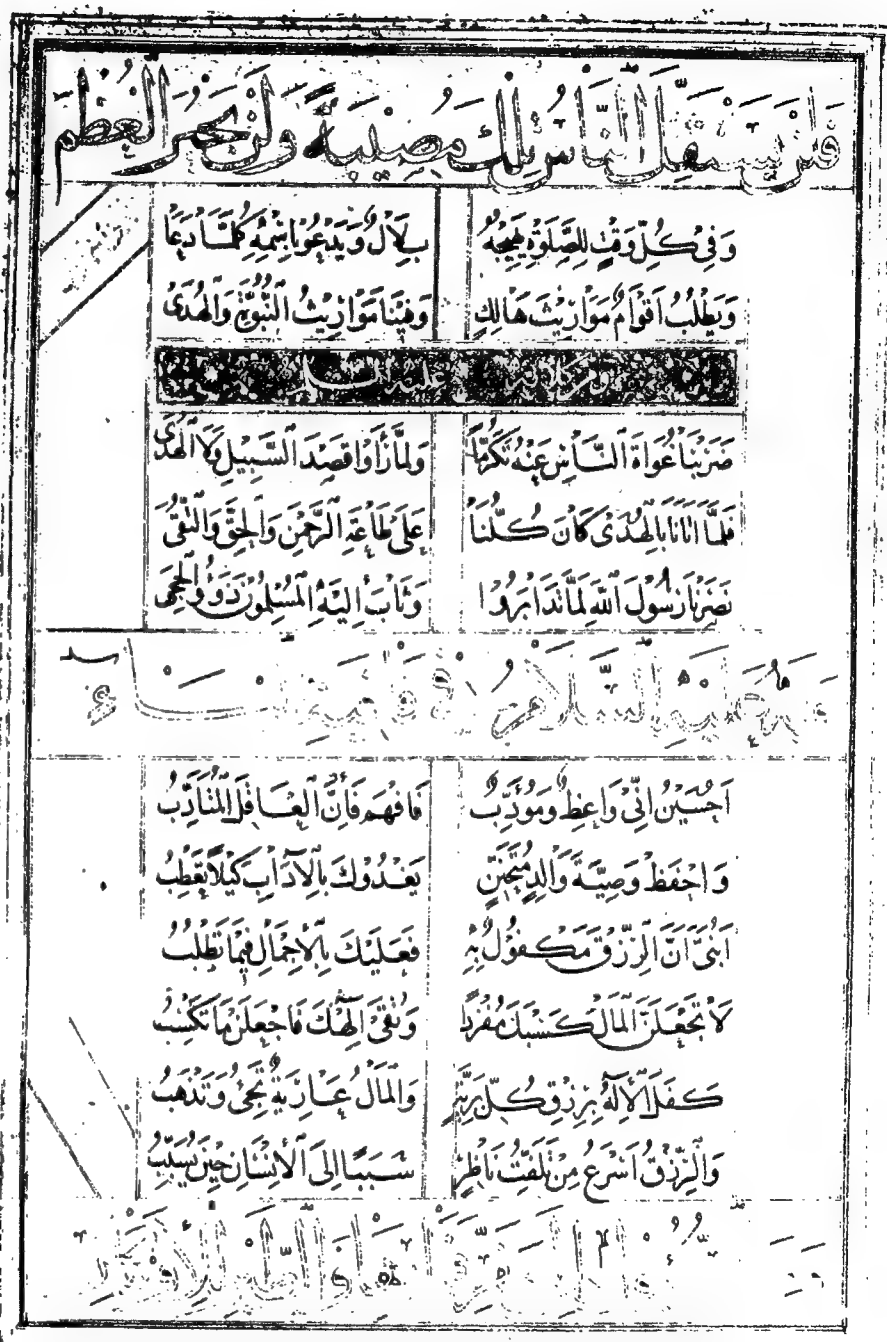 فلن يستقل الناس تلك مصيبة ولن يجبر العظم
وَفِي كُلِّ وَقْتٍ لِلصَّلٰوةِ يَهِيجُهُ بِلَالٌ وَيَدْعُو بِاسْمِهِ كُلَّمَا دَعَا
وَيَطْلُبُ أَقْوَامٌ مَوَارِيثَ هَالِكٍ وَفِينَا مَوَارِيثُ النُّبُوَّةِ وَالْهُدَى
ومن كلامه عليه السلام
ضَرَبْنَا غُوَاةَ النَّاسِ عَنْهُ تَكَرُّمًا وَلَمَّا رَأَوْا قَصْدَ السَّبِيلِ وَلَا الْهُدَى
فَلَمَّا أَتَانَا بِالْهُدَى كَانَ كُلُّنَا عَلَى طَاعَةِ الرَّحْمٰنِ وَالْحَقِّ وَالتُّقَى
نَصَرْنَا رَسُولَ اللّٰهِ لَمَّا تَدَابَرُوا وَثَابَ إِلَيْهِ الْمُسْلِمُونَ ذَوُو الْحِجَى
عليه السلام
أَحُسَيْنُ إِنِّي وَاعِظٌ وَمُؤَدِّبٌ فَافْهَمْ فَإِنَّ الْعَاقِلَ الْمُتَأَدِّبُ
وَاحْفَظْ وَصِيَّةَ وَالِدٍ مُتَحَنِّنٍ يَغْذُوكَ بِالْآدَابِ كَيْلَا تَعْطَبُ
أَبُنَيَّ إِنَّ الرِّزْقَ مَكْفُولٌ بِهِ فَعَلَيْكَ بِالْإِجْمَالِ فِيمَا تَطْلُبُ
لَا تَجْعَلَنَّ الْمَالَ كَسْبَكَ مُفْرَدًا وَتُقَى إِلٰهِكَ فَاجْعَلَنْ مَا تَكْسِبُ
كَفَلَ الْإِلٰهُ بِرِزْقِ كُلِّ بَرِيَّةٍ وَالْمَالُ عَارِيَةٌ تَجِيءُ وَتَذْهَبُ
وَالرِّزْقُ أَسْرَعُ مِنْ تَلَفُّتِ نَاظِرٍ سَبَبًا إِلَى الْإِنْسَانِ حِينَ يُسَبَّبُ